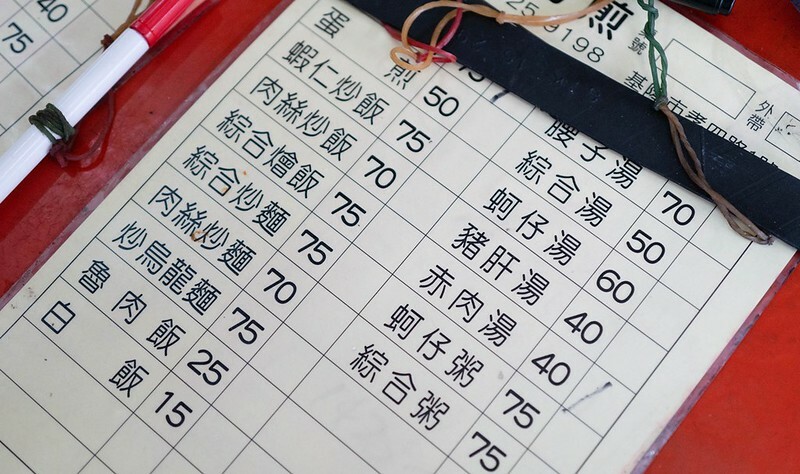 40
75
煎
259198
號
外帶
基隆市孝四路
蛋煎 50
蝦仁炒飯 75
肉絲炒飯 70
綜合燴飯 75
綜合炒麵 75
肉絲炒麵 70
炒烏龍麵 75
魯肉飯 25
白飯 15
腰子湯 70
綜合湯 50
蚵仔湯 60
豬肝湯 40
赤肉湯 40
蚵仔粥 75
綜合粥 75